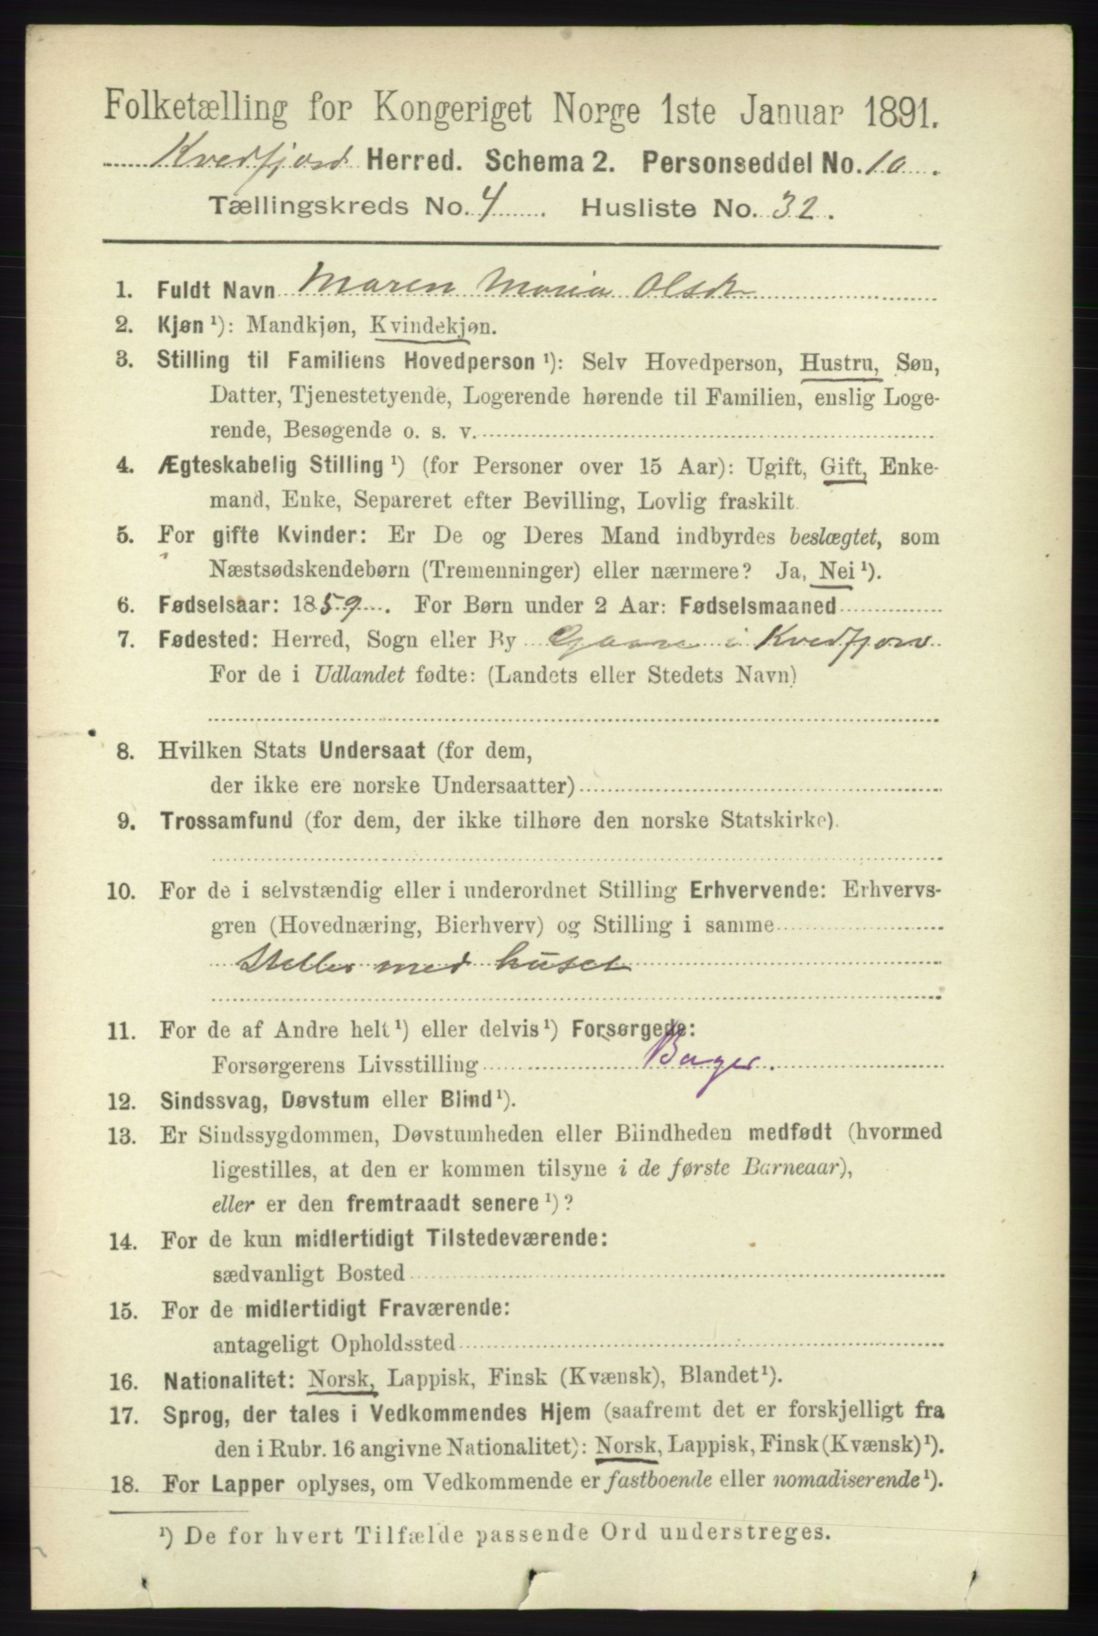 Folketælling for Kongeriget Norge 1ste Januar 1891.
Kvedfjord Herred. Schema 2. Personseddel No. 10.
Tællingskreds No. 4. Husliste No. 32.
1. Fuldt Navn Maren Maria Olsdr
2. Kjøn ¹): Mandkjøn, Kvindekjøn.
3. Stilling til Familiens Hovedperson ¹): Selv Hovedperson, Hustru, Søn,
Datter, Tjenestetyende, Logerende hørende til Familien, enslig Loge-
rende, Besøgende o. s. v.
4. Ægteskabelig Stilling ¹) (for Personer over 15 Aar): Ugift, Gift, Enke-
mand, Enke, Separeret efter Bevilling, Lovlig fraskilt
5. For gifte Kvinder: Er De og Deres Mand indbyrdes beslægtet, som
Næstsødskendebørn (Tremenninger) eller nærmere? Ja, Nei ¹).
6. Fødselsaar: 1859. For Børn under 2 Aar: Fødselsmaaned
7. Fødested: Herred, Sogn eller By i Kvedfjord
For de i Udlandet fødte: (Landets eller Stedets Navn)
8. Hvilken Stats Undersaat (for dem,
der ikke ere norske Undersaatter)
9. Trossamfund (for dem, der ikke tilhøre den norske Statskirke).
10. For de i selvstændig eller i underordnet Stilling Erhvervende: Erhvervs-
gren (Hovednæring, Bierhverv) og Stilling i samme
Steller med huset
11. For de af Andre helt ¹) eller delvis ¹) Forsørgede:
Forsørgerens Livsstilling Bager.
12. Sindssvag, Døvstum eller Blind ¹).
13. Er Sindssygdommen, Døvstumheden eller Blindheden medfødt (hvormed
ligestilles, at den er kommen tilsyne i de første Barneaar),
eller er den fremtraadt senere ¹)?
14. For de kun midlertidigt Tilstedeværende:
sædvanligt Bosted
15. For de midlertidigt Fraværende:
antageligt Opholdssted
16. Nationalitet: Norsk, Lappisk, Finsk (Kvænsk), Blandet ¹).
17. Sprog, der tales i Vedkommendes Hjem (saafremt det er forskjelligt fra
den i Rubr. 16 angivne Nationalitet): Norsk, Lappisk, Finsk (Kvænsk) ¹).
18. For Lapper oplyses, om Vedkommende er fastboende eller nomadiserende ¹).
¹) De for hvert Tilfælde passende Ord understreges.